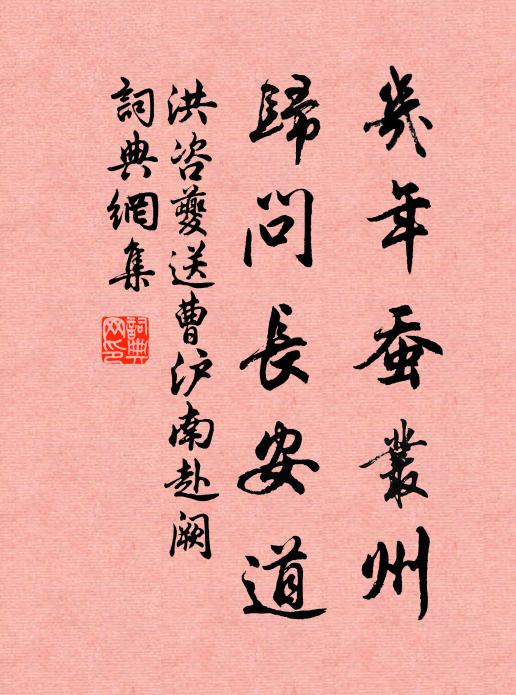 幾年蚕叢州
歸問長安道
洪咨夔送曹沪南赴阙
詞典網集
詞典網印